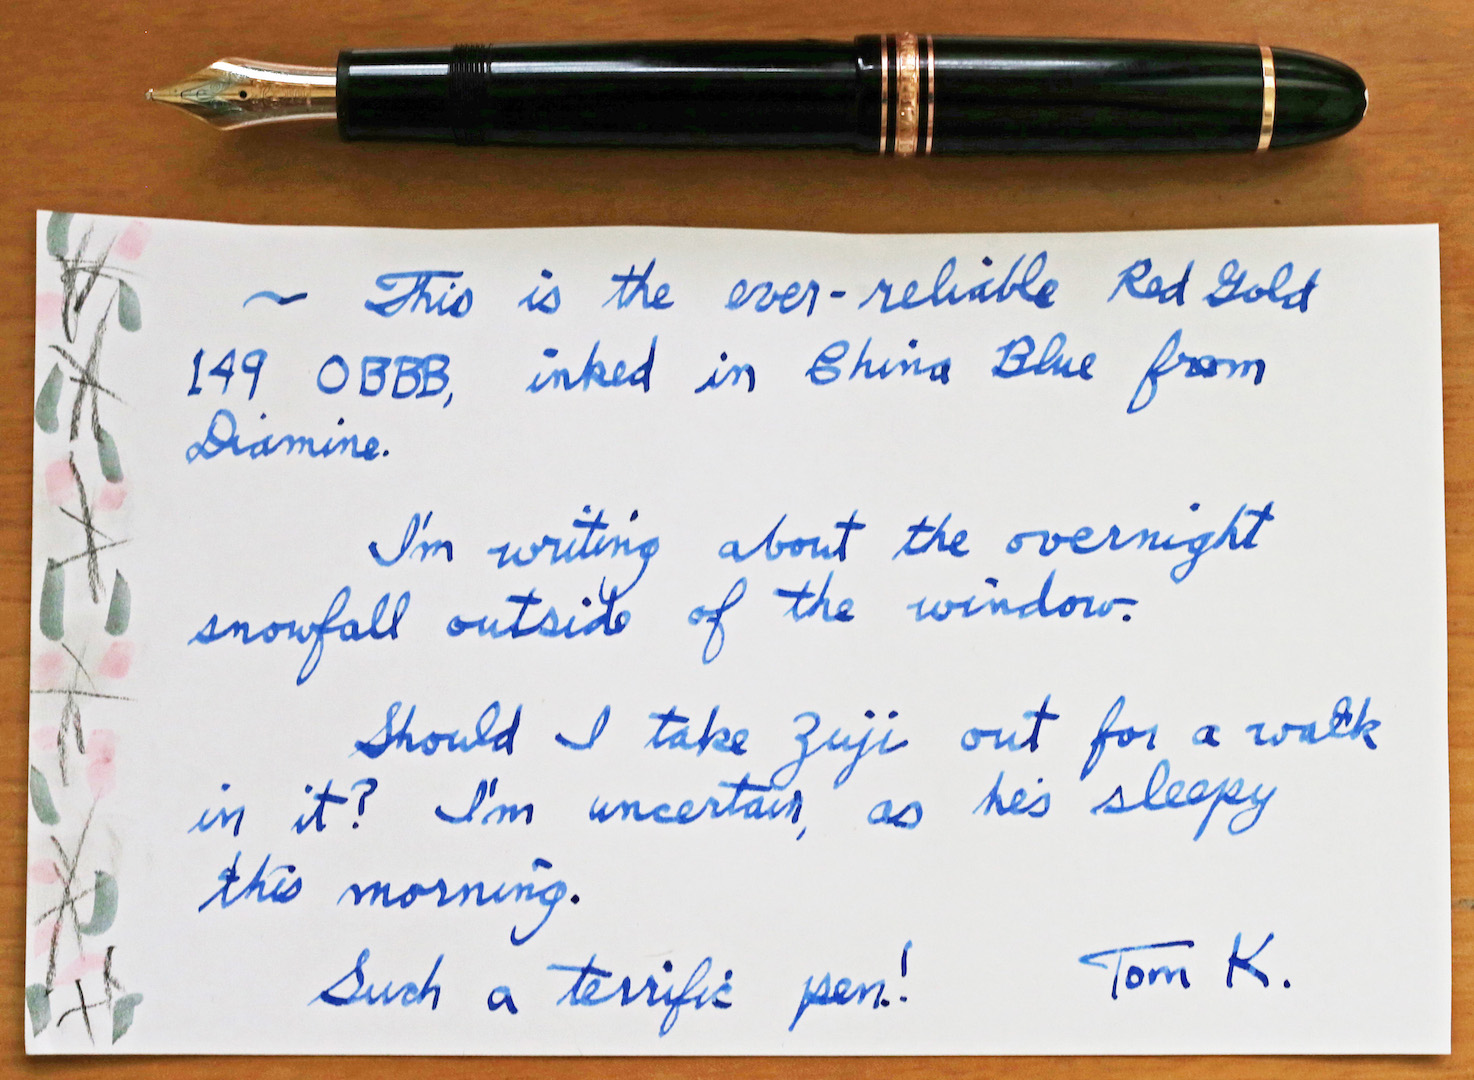 ~ This is the ever-reliable Red Gold
149 OBBB, inked in China Blue from
Diamine.
I'm writing about the overnight
snowfall outside of the window.
Should I take Zuji out for a walk
in it? I'm uncertain, as he's sleepy
this morning.
Such a terrific pen! Tom K.